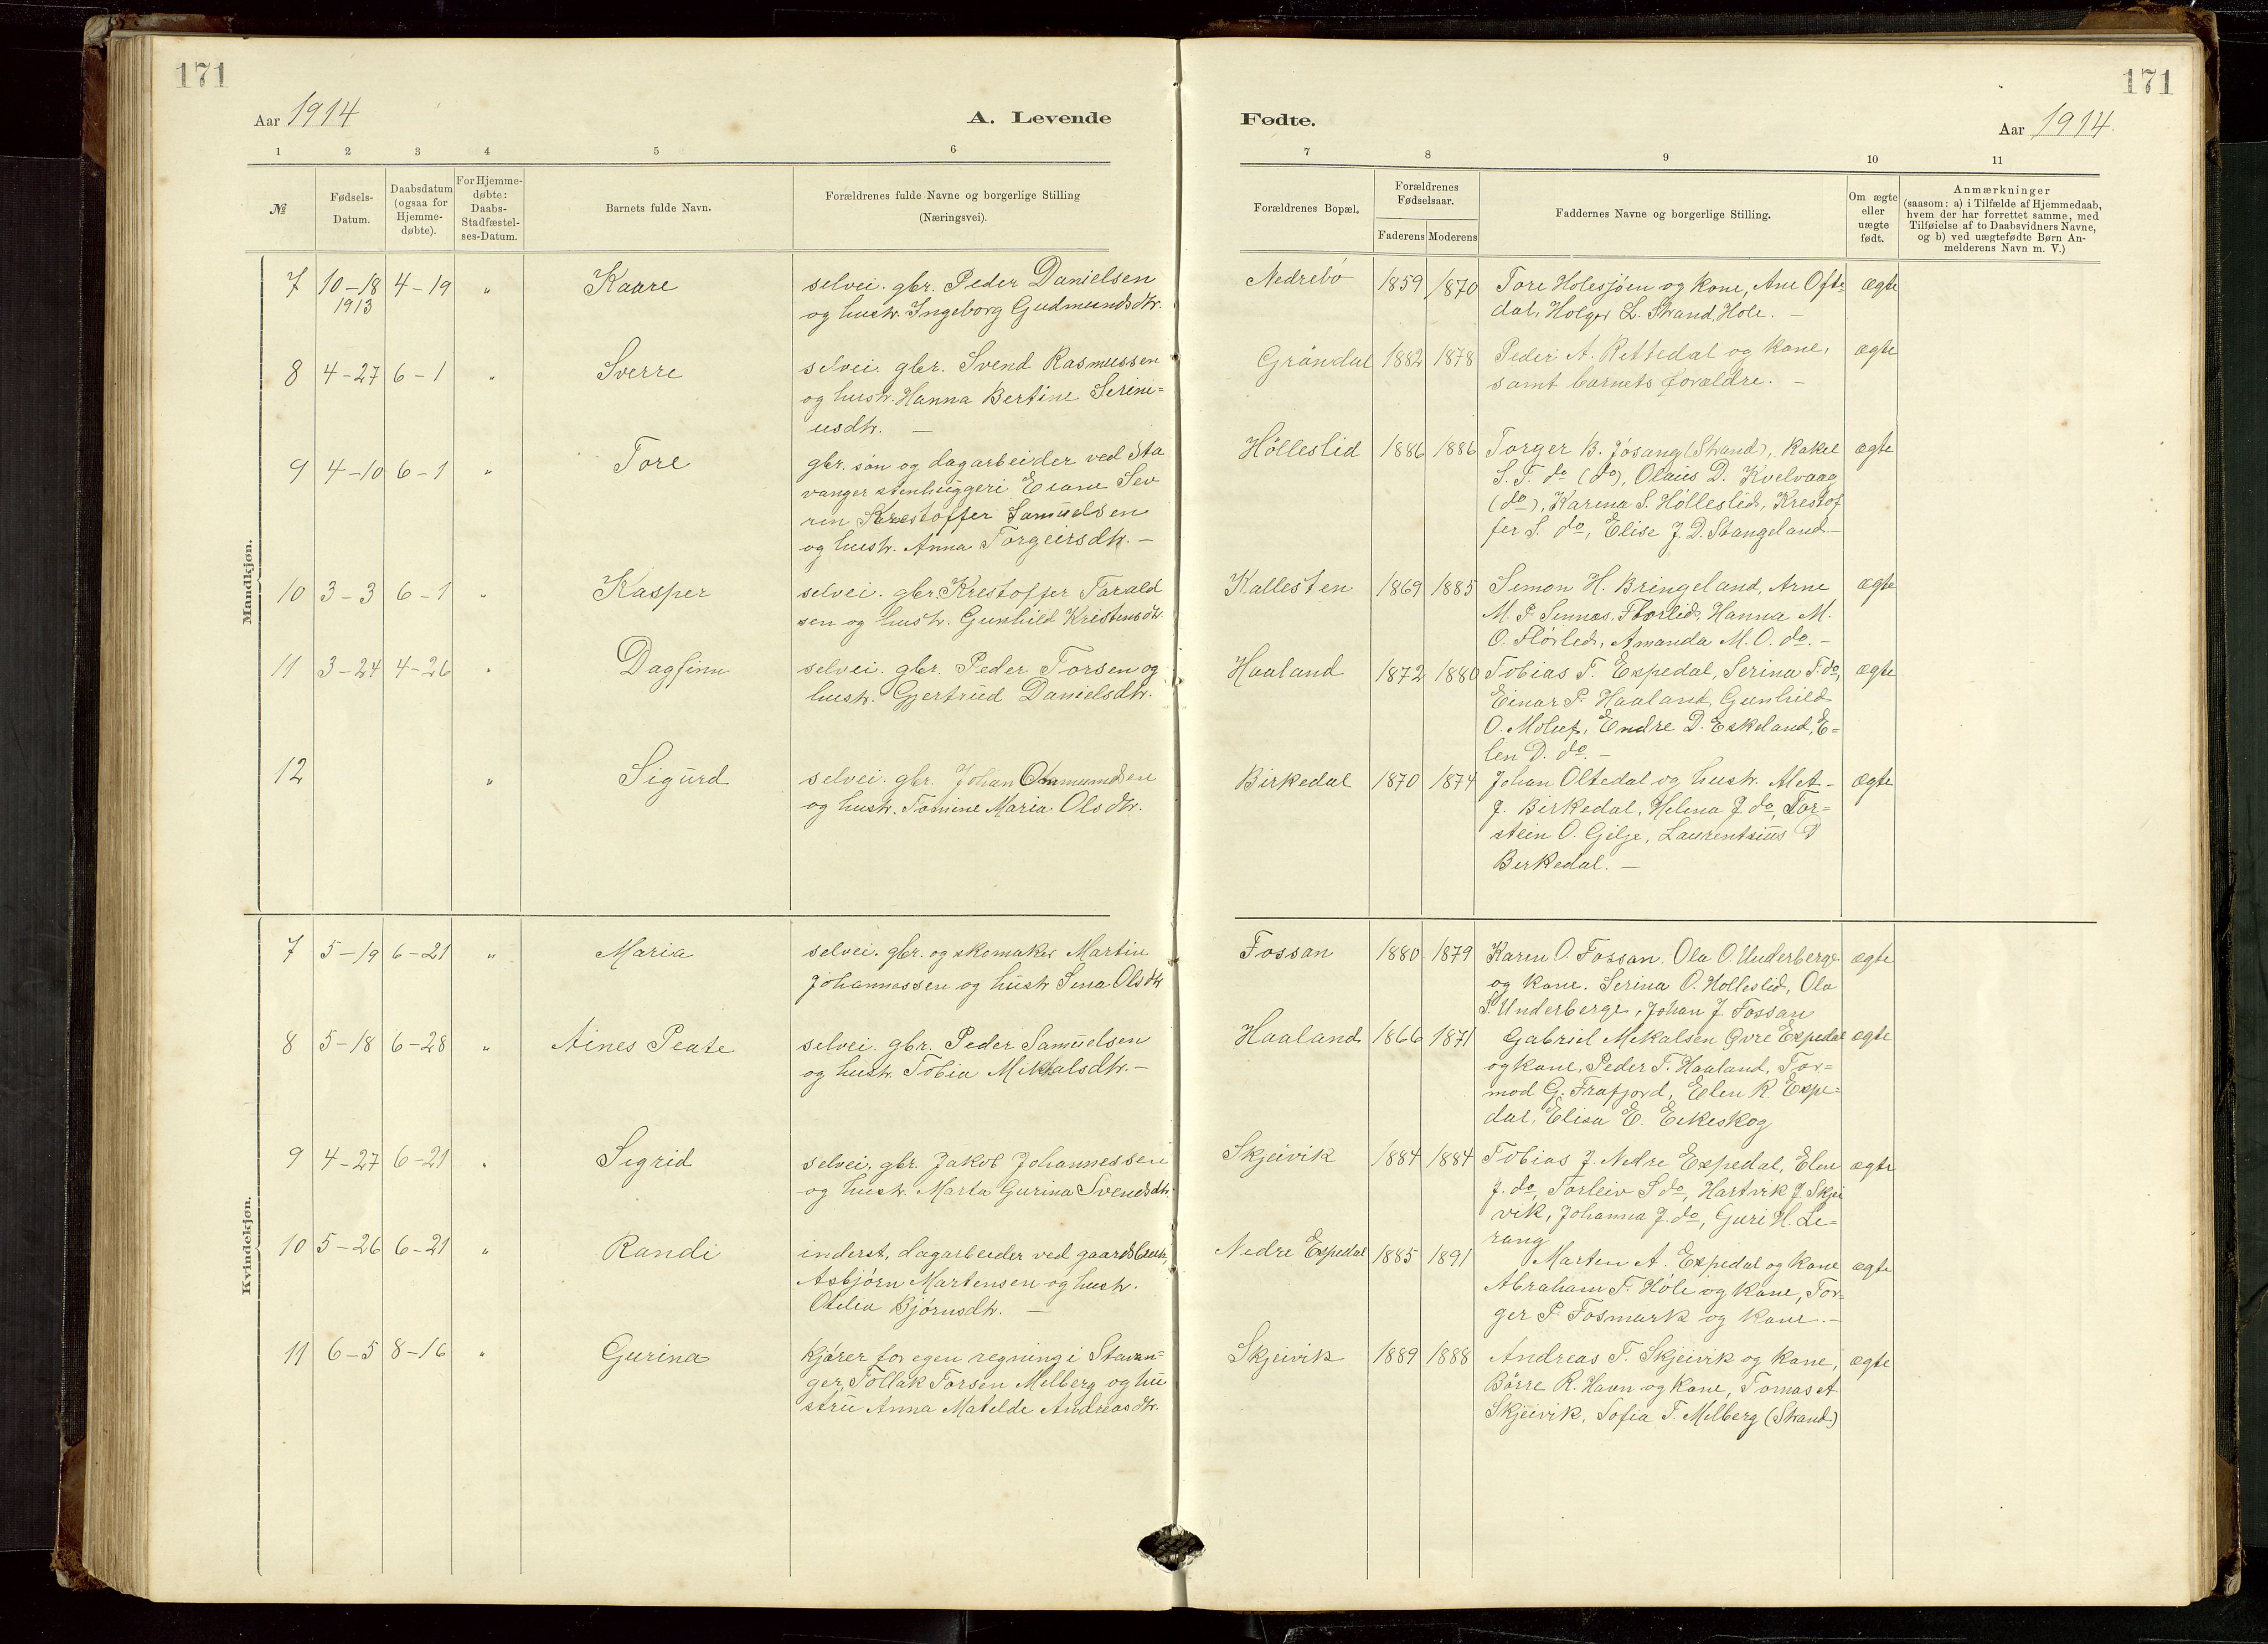 171
171
Aar 1914
A. Levende
Fødte.
Aar 1914
1 2 3 4 5 6
7 8 9 10 11
№
Fødsels-
Datum.
Daabsdatum
(ogsaa for
Hjemme-
døbte).
For Hjemme-
døbte:
Daabs-
Stadfæstel-
ses-Datum.
Barnets fulde Navn.
Forældrenes fulde Navne og borgerlige Stilling
(Næringsvei).
Forældrenes Bopæl.
Forældrenes
Fødselsaar.
Faderens Moderens
Faddernes Navne og borgerlige Stilling.
Om ægte
eller
uægte
født.
Anmærkninger
(saasom: a) i Tilfælde af Hjemmedaab,
hvem der har forrettet samme, med
Tilføielse af to Daabsvidners Navne,
og b) ved uægtefødte Børn An-
melderens Navn m. V.)
Mandkjøn.
7 10-18 4-19 " Kaare
1913
selvei. gbr. Peder Danielsen
og hustr. Ingeborg Gudmundsdtr.
Nedrebö 1859 1870
Tore Holesjöen og kone, Ane Ofte-
dal, Holger L. Strand, Hole. –
ægte
8 4-27 6-1 " Sverre
selvei. gbr. Svend Rasmussen
og hustr. Hanna Bertine Serini-
usdtr. –
Gröndal 1882 1878
Peder A. Rettedal og kone,
samt barnets forældre. –
ægte
9 4-10 6-1 " Tore
gbr. sön og dagarbeider ved Sta
vanger stenhuggeri Eiane Sev
rin Krestoffer Samuelsen
og hustr. Anna Torgeirsdtr. –
Hölleslid 1886 1886
Torger B. Jösang (Strand), Rakel
S. T. do (do), Olaus D. Kvelvaag
(do), Karina S. Hölleslid, Krestof
fer S. do, Elise J. D. Stangeland –
ægte
10 3-3 6-1 " Kasper
selvei. gbr. Krestoffer Tarald
sen og hustr. Gunhild Kristensdtr.
Kallesten 1869 1885
Simon H. Bringeland, Arne
M. P. Sunnes, Flörlid, Hanna M.
O. Flörlid, Amanda M. O. do. –
ægte
11 3-24 4-26 " Dagfinn
selvei. gbr. Peder Torsen og
hustr. Gjertrud Danielsdtr.
Haaland 1872 1880
Tobias T. Espedal, Serina T. do,
Einar P. Haaland, Gunhild
O. Molief, Endre D. Eskeland, E-
len D. do –
ægte
12 " Sigurd
selvei. gbr. Johan Ommundsen
og hustr. Tomine Maria Olsdtr.
Birkedal 1870 1874
Johan Oltedal og hustr. Met-
J. Birkedal, Helena J. do, Tor-
stein O. Gilje, Laurentsius D
Birkedal. –
ægte
Kvindekjøn.
7 5-19 6-21 " Maria
selvei. gbr. og skomaker Martin
Johannessen og hustr Sina Olsdtr
Fossan 1880 1879
Karen O. Fossan. Ola O. Underberge
og kone. Serina O. Holleslid, Ola
S. Underberge, Johan J. Fossan
ægte
8 5-18 6-28 " Aines Peate
selvei. gbr. Peder Samuelsen
og hustr. Tobia Mekalsdtr. –
Haaland 1866 1871
Gabriel Mekalsen Övre Espedal
og kone, Peder T. Haaland, Tor-
mod G. Frafjord, Elen R. Espe-
dal, Elisa E. Eikeskog
ægte
9 4-27 6-21 " Sigrid
selvei. gbr. Jakob Johannessen
og hustr. Marta Gurina Svendsdtr.
Skjeivik 1884 1884
Tobias J. Nedre Espedal, Elen
J. do, Torleiv S do, Hartvik J. Skjei
vik, Johanna J. do, Guri H. Le-
rang
ægte
10 5-26 6-21 " Randi
inderst, dagarbeider ved gaardsbruk,
Asbjörn Martensen og hustr.
Otelia Bjørnsdtr. –
Nedre Espedal 1885 1891
Marten A. Espedal og kone
Abraham T. Höle og kone, Tor-
ger P. Fosmark og kone. –
ægte
11 6-5 8-16 " Gurina
Kjörer for egen regning i Stavan-
ger, Tollak Torsen Melberg og hu
stru Anna Matelde Andreasdtr.
Skjeivik 1889 1888
Andreas T. Skjeivik og kone,
Börre R. Havn og kone, Tomas A.
Skjeivik, Sofia T. Melberg (Strand)
ægte